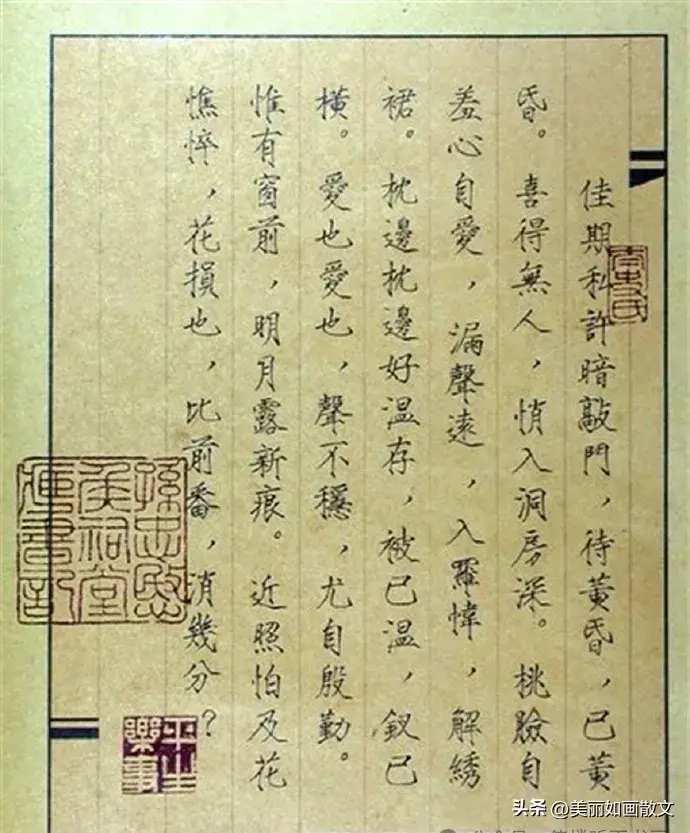 佳期私許暗敲門，待黃昏，已黃
昏。喜得無人，悄入洞房深。桃臉自
羞心自愛，漏聲遠，入羅幃，解綉
裙。枕邊枕邊好溫存，被已溫，釵已
橫。愛也愛也，聲不穩，尤自殷勤。
惟有窗前，明月露新痕。近照怕及花
憔悴，花損也，比前番，消幾分？
孫忠愍
侯祠堂
藏書記
平生
樂事
头条 @美丽如画散文